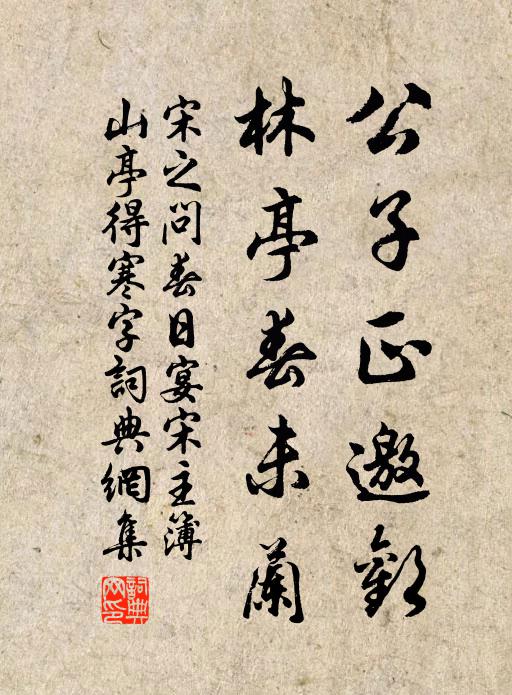 公子正邀歡
林亭春未蘭
宋之問春日宴宋主簿
山亭得寒字詞典網集
詞典網印